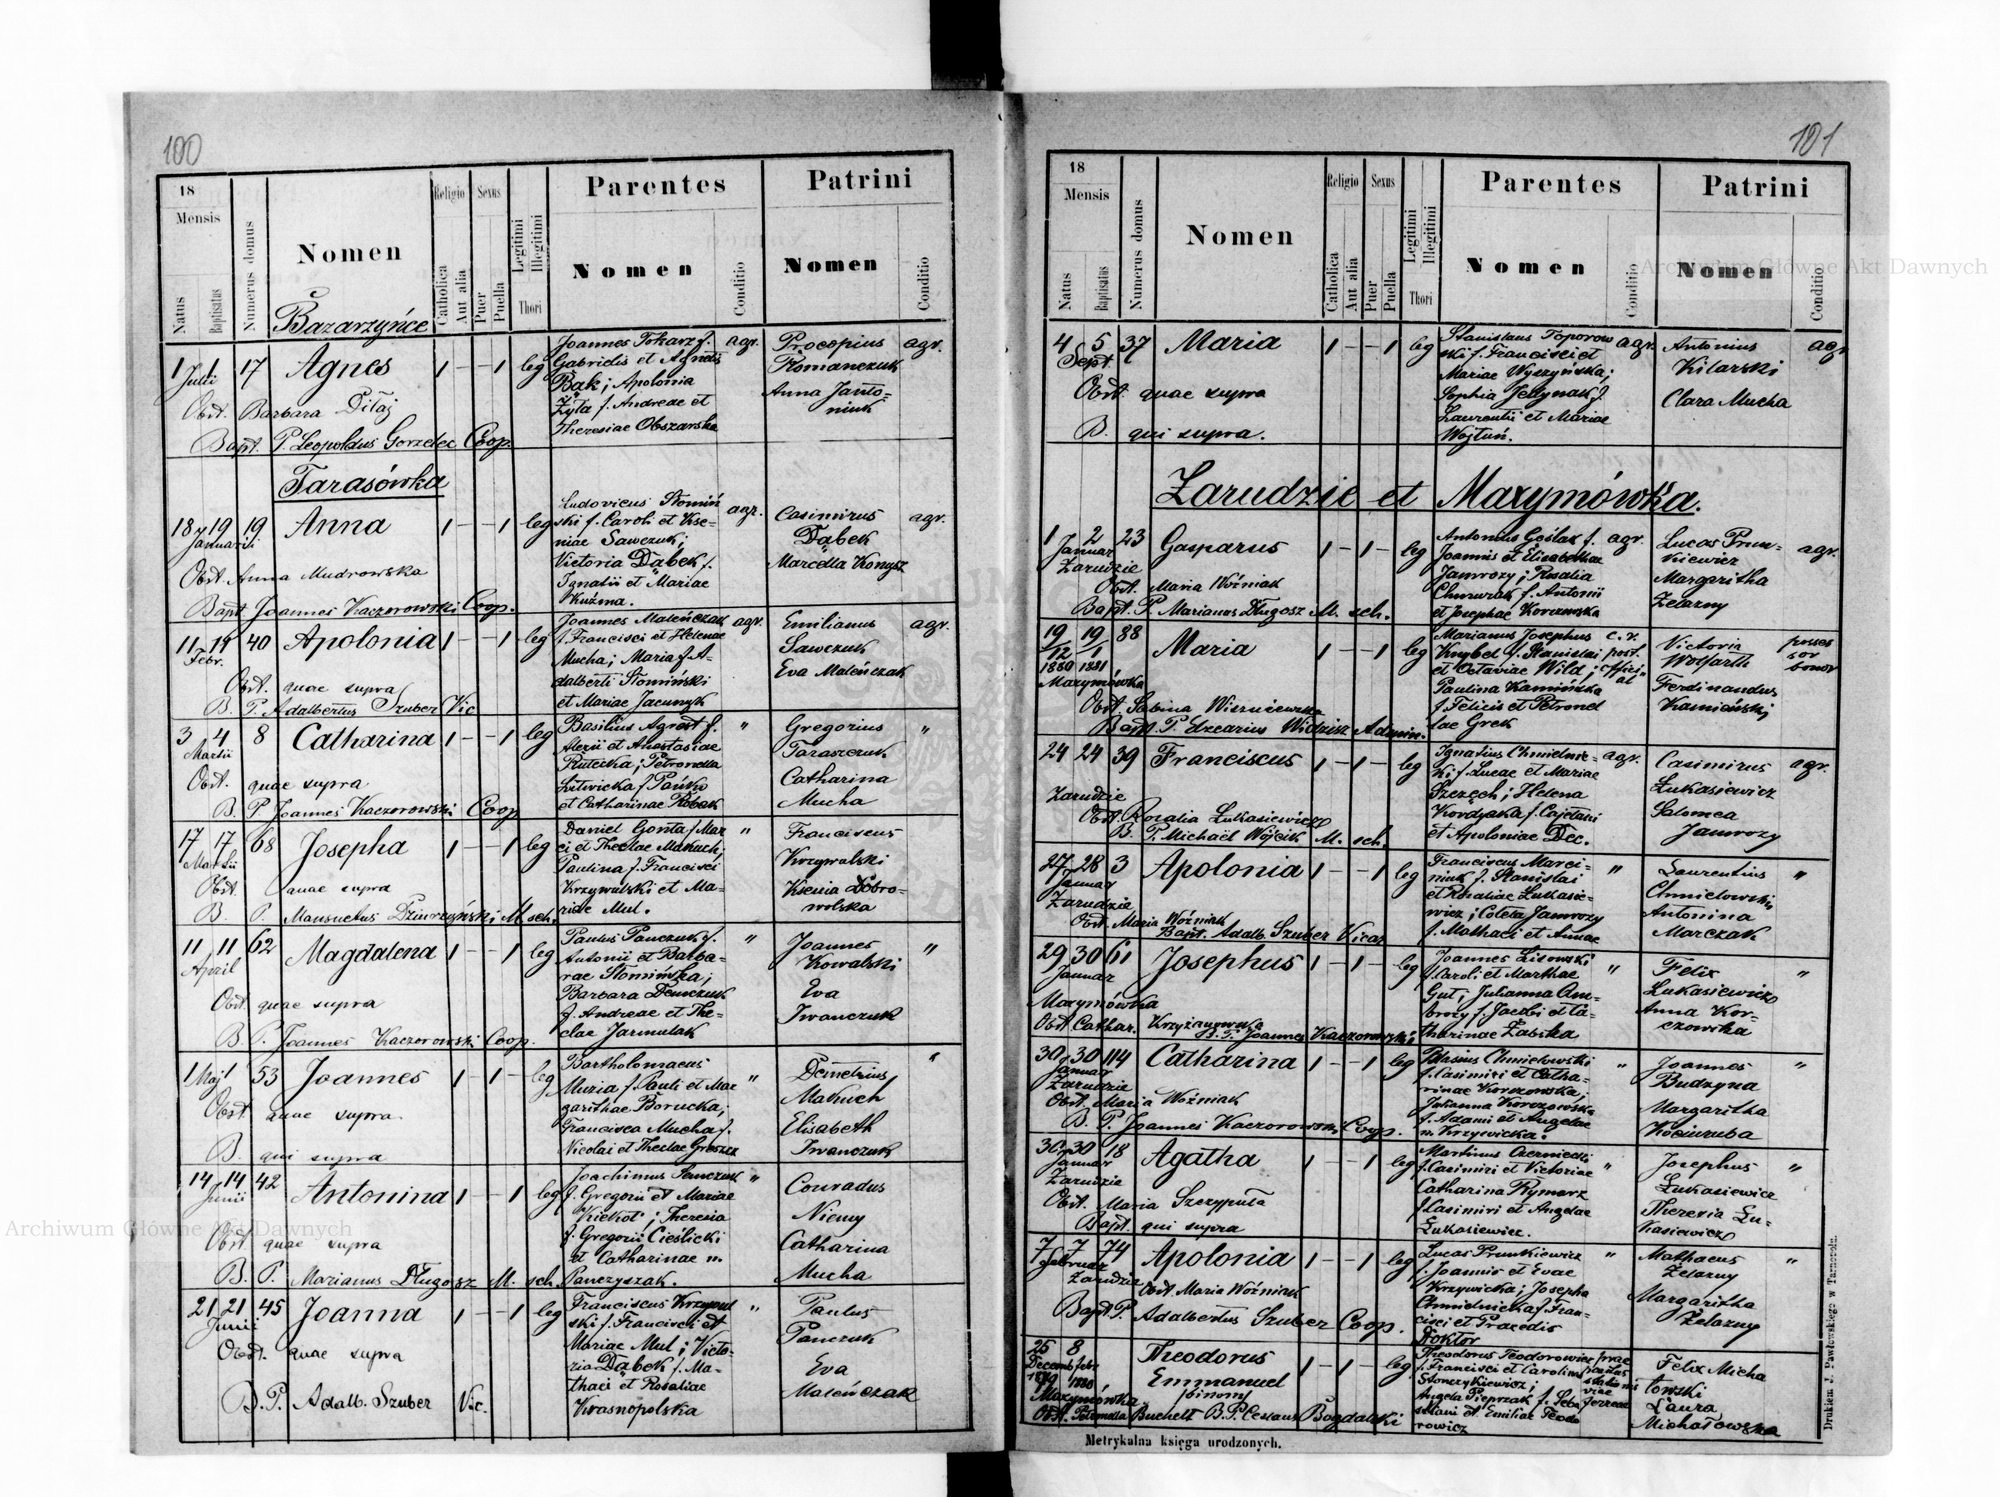 100
18
Mensis
Natus
Baptisatus
Numerus domus
Nomen
Religio
Catholica
Aut alia
Sexus
Puer
Puella
Legitimi
Illegitimi
Thori
Parentes
Nomen
Conditio
Patrini
Nomen
Conditio
Bazarzyńce
1 1 17 Agnes 1 – – 1 leg
Julii
Obst. Barbara Pitaj
Bapt. P. Leopoldus Gorzelec Coop.
Joannes Tokarz f. agr.
Gabrielis et Agnetis
Bąk; Apolonia
Żyła f. Andreae et
Theresiae Obszarska
Procopius agr.
Romanczuk
Anna Janto-
niuk
Tarasówka
18 19 19 Anna 1 – – 1 leg
Januarii
Obst. Anna Mudrowska
Bapt. Joannes Kaczorowski Coop.
Ludovicus Słomiń agr.
ski f. Caroli et Kse-
niae Sawczuk;
Victoria Dąbek f.
Ignatii et Mariae
Kuźma.
Casimirus agr.
Dąbek
Marcella Konysz
11 14 40 Apolonia 1 – – 1 leg
Febr.
Obst. quae supra
B. P. Adalbertus Szuber Vic
Joannes Maleńczak agr.
f. Francisci et Helenae
Mucha; Maria f. A-
dalberti Słomiński
et Mariae Jacunyk
Emilianus agr.
Sawczuk
Eva Maleńczak
3 4 8 Catharina 1 – – 1 leg
Martii
Obst. quae supra
B. P. Joannes Kaczorowski Coop
Basilius Agrest f. "
Alexii et Anastasiae
Rutecka; Petronella
Litwicka f. Pańko
et Catharinae Robak
Gregorius "
Taraszczuk
Catharina
Mucha
17 17 68 Josepha 1 – – 1 leg
Martii
Obst. quae supra
B. P. Mansuetus Dziurzyński M. sch.
Daniel Gonta f. Mar "
ci et Theclae Manuch;
Paulina f. Francisci
Krzywulski et Ma-
riae Mul.
Franciscus
Krzywulski
Ksenia Dobro-
wolska
11 11 62 Magdalena 1 – – 1 leg
April
Obst. quae supra
B. P. Joannes Kaczorowski Coop.
Paulus Panczuk f. "
Antonii et Barba-
rae Słomińska;
Barbara Demczuk
f. Andreae et The-
clae Jarmulak
Joannes "
Kowalski
Eva
Iwanczuk
1 1 53 Joannes 1 – 1 – leg
Maj
Obst. quae supra
B. qui supra
Bartholomaeus
Muzia f. Pauli et Mar "
garithae Borucka;
Francisca Mucha f.
Nicolai et Theclae Groszek
Demetrius "
Małuch
Elisabeth
Iwanczuk
14 14 42 Antonina 1 – – 1 leg
Junii
Obst. quae supra
B. P. Marianus Długosz M. sch.
Joachimus Senczuk "
f. Gregorii et Mariae
Kiekot; Theresia
f. Gregorii Cieślicki
et Catharinae n.
Panczyszak.
Conradus
Niemy
Catharina
Mucha
21 21 45 Joanna 1 – – 1 leg
Junii
Obst. quae supra
B. P. Adalb. Szuber Vic.
Franciscus Krzywul "
ski f. Francisci et
Mariae Mul; Victo-
ria Dąbek f. Ma-
thaei et Rosaliae
Krasnopolska
Paulus
Panczuk
Eva
Maleńczak
101
18
Mensis
Natus
Baptisatus
Numerus domus
Nomen
Religio
Catholica
Aut alia
Sexus
Puer
Puella
Legitimi
Illegitimi
Thori
Parentes
Nomen
Conditio
Patrini
Nomen
Conditio
4 5 37 Maria 1 – – 1 leg
Sept.
Obst. quae supra
B. qui supra.
Stanislaus Toporow agr.
ski f. Francisci et
Mariae Wyszyńska;
Sophia Jedynak f.
Laurentii et Mariae
Wojtuń.
Antonius agr
Kilarski
Clara Mucha
Zarudzie et Maxymówka.
1 2 23 Gasparus 1 – 1 – leg
Januar
Zarudzie
Obst. Maria Woźniak
Bapt. P. Marianus Długosz M. sch.
Antonius Goślak f. agr.
Joannis et Elisabethae
Jamrozy; Rosalia
Chmurak f. Antonii
et Josephae Korczewska
Lucas Prun- agr.
kiewicz
Margaritha
Żelazny
19 19 88 Maria 1 – – 1 leg
12 1
1880 1881
Maxymówka
Obst. Sabina Wiszniewska
Bapt. P. Elzearius Widzisz Admin.
Marianus Josephus c. r.
Knybel f. Stanislai post.
et Octaviae Wild; offici-
Paulina Kamińska al
f. Felicis et Petronel
lae Grek
Victoria posses
Wolfarth sor
Ferdinandus bonor
Kamieński
24 24 39 Franciscus 1 – 1 – leg
Zarudzie
Obst. Rosalia Łukasiewicz
B. P. Michaël Wójcik M. sch.
Ignatius Chmielnic- agr.
ki f. Lucae et Mariae
Szczęch; Helena
Kordyaka f. Cajetani
et Apoloniae Dec.
Casimirus agr.
Łukasiewicz
Salomea
Jamrozy
27 28 3 Apolonia 1 – – 1 leg
Januar
Zarudzie
Obst. Maria Woźniak
Bapt. Adalb. Szuber Vicar
Franciscus Marci- "
niuk f. Stanislai
et Rosaliae Łukasie-
wicz; Coleta Jamrozy
f. Mathaei et Annae
Laurentius "
Chmielowski
Antonina
Marczak
29 30 61 Josephus 1 – 1 – leg
Januar
Maxymówka
Obst. Cathar. Krzyżanowska
B. P. Joannes Kaczorowski
Joannes Lisowski
f. Caroli et Marthae "
Gut; Julianna Am-
brozy f. Jacobi et Ca-
tharinae Łabska
Felix "
Łukasiewicz
Anna Kor-
czowska
30 30 114 Catharina 1 – – 1 leg
Januar
Zarudzie
Obst. Maria Woźniak
B. P. Joannes Kaczorowski Coop.
Blasius Chmielowski "
f. Casimiri et Catha-
rinae Korczowska;
Julianna Korczowska
f. Adami et Angelae
n. Krzywicka.
Joannes "
Budzyna
Margaritha
Kociuruba
30 30 18 Agatha 1 – – 1 leg
Januar
Zarudzie
Obst. Maria Szczypuła
Bapt. qui supra
Martinus Czerniecki
f. Casimiri et Victoriae "
Catharina Rymarz
f. Casimiri et Angelae
Łukasiewicz.
Josephus "
Łukasiewicz
Theresia Łu-
kasiewicz
7 7 74 Apolonia 1 – – 1 leg
Februar
Zarudzie
Obst. Maria Woźniak
Bapt. P. Adalbertus Szuber Coop.
Lucas Prunkiewicz "
f. Joannis et Evae
Krzywicka; Josepha
Chmielnicka f. Fran-
cisci et Praxedis
Doktor
Mathaeus "
Żelazny
Margaritha
Żelazny
25 8 Theodorus 1 – 1 leg
Decemb febr Emmanuel
1879 1880 binom
Maxymówka
Obst. Petronella Buchelt B. P. Ceslaus Bogdalski
Theodorus Teodorowicz prae
f. Francisci et Carolinae
Stonczykiewicz; viae
Angela Pieprzak f. Seba ferreae
stiani et Emiliae Teodo
rowicz
Felix Micha
łowski
Laura
Michałowska
Metrykalna księga urodzonych.
Drukiem J. Pawłowskiego w Tarnopolu.
Archiwum Główne Akt Dawnych
Archiwum Główne Akt Dawnych